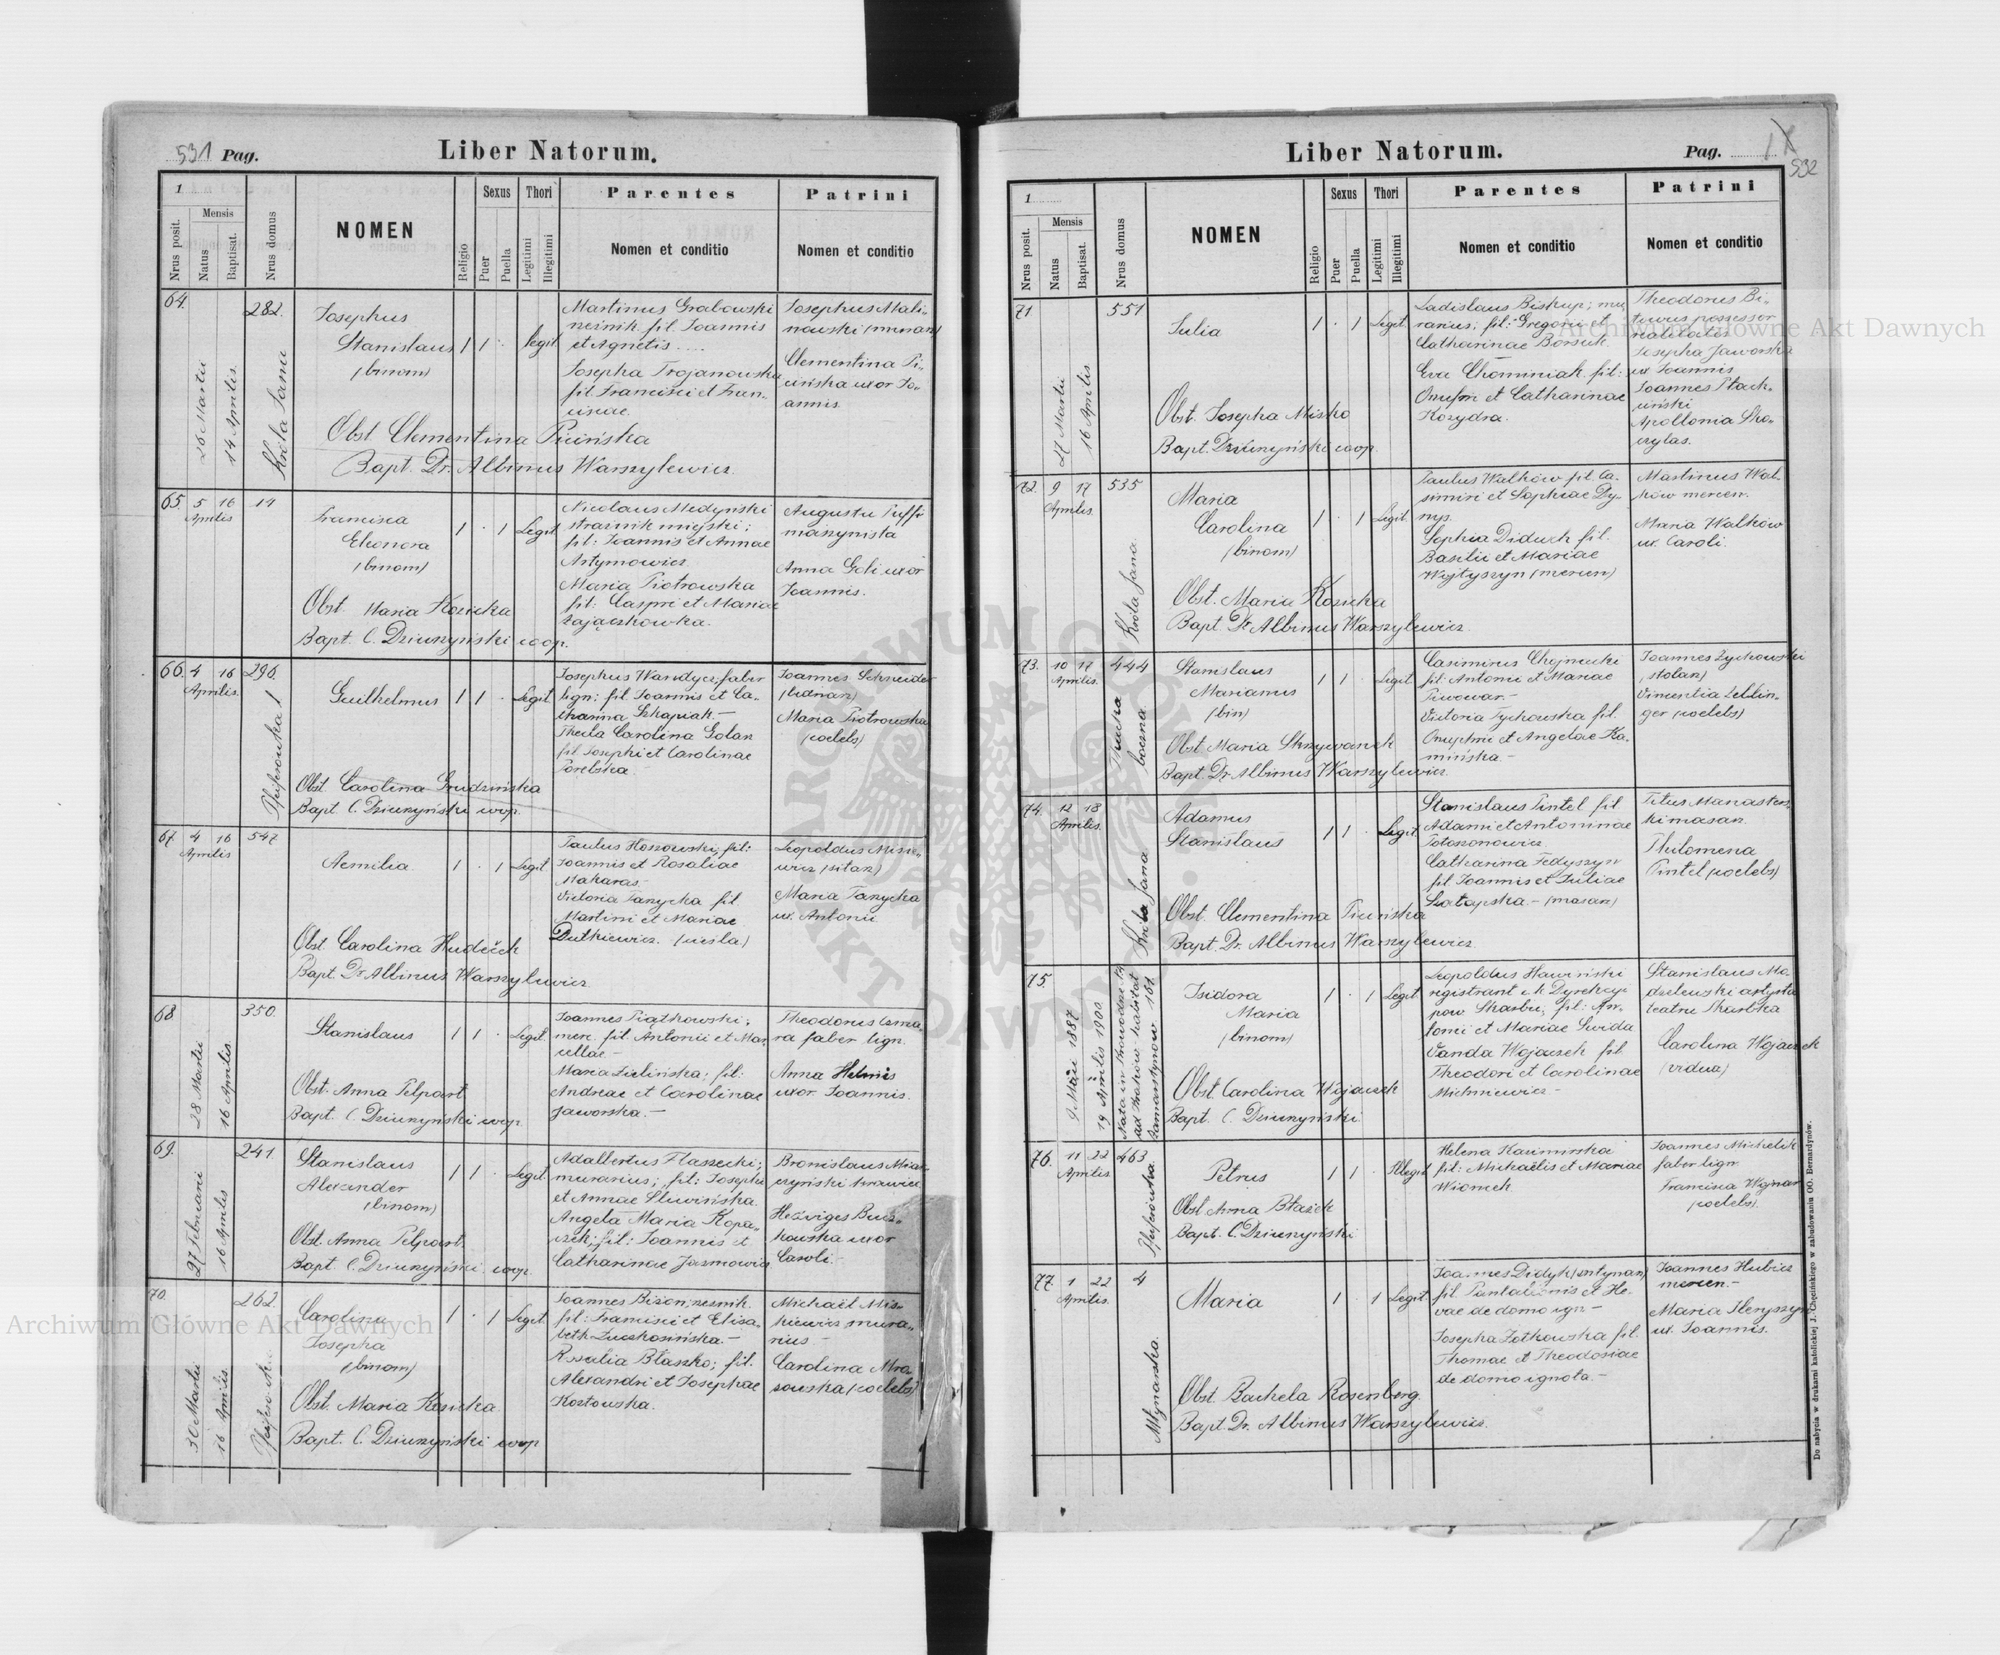 531 Pag.
Liber Natorum.
1
Nrus posit.
Mensis
Natus
Baptisat.
Nrus domus
NOMEN
Religio
Sexus
Puer
Puella
Thori
Legitimi
Illegitimi
Parentes
Nomen et conditio
Patrini
Nomen et conditio
64.
26 Martii
14 Aprilis.
282.
Króla Jana
Josephus
Stanislaus
(binom)
1 1 · legit
Martinus Grabowski
rzeźnik fil. Joannis
et Agnetis
Josepha Trojanowska
fil. Francisci et Fran-
ciscae.
Josephus Mali-
nowski (murarz)
Clementina Pi-
cińska uxor Jo-
annis.
Obst. Clementina Picińska
Bapt. Dr. Albinus Warszylewicz.
65. 5 16
Aprilis
14
Francisca
Eleonora
(binom)
1 · 1 Legit
Nicolaus Medyński
strażnik miejski;
fil: Joannis et Annae
Artymowicz
Maria Piotrowska
fil: Caspri et Mariae
Zajączkowska.
maszynista
Anna Goli uxor
Joannis.
Obst Maria Kosicka
Bapt. C. Dziurzyński coop.
66. 4 16
Aprilis.
296.
Guilhelmus
1 1 · Legit
Josephus Wandycz, faber
lign: fil Joannis et Ca-
tharina Szkapiak -
Thecla Carolina Golan
fil Josephi et Carolinae
Porebska.
Joannes Schneider
Maria Piotrowska
(coelebs)
Obst. Carolina Grudzińska
Bapt C. Dziurzyński coop.
67 4 16
Aprilis
547
Aemilia
1 · 1 Legit
Paulus Hoszowski; fil:
Joannis et Rosaliae
Makaras.-
Victoria Tanycka fil
Martini et Mariae
Dutkiewicz. (cieśla)
Maria Tanycka
ux. Antonii
Obst. Carolina Hudeček
Bapt. Dr Albinus Warszylewicz
68
28 Martii
16 Aprilis.
350.
Stanislaus
1 1 · Legit.
Joannes Piątkowski;
merc. fil. Antonii et Mar-
cellae -
Maria Zielińska; fil:
Andreae et Carolinae
Jaworska.-
ra faber lign.
Anna Helmis
uxor Joannis.
Obst. Anna Pelpart
Bapt. C. Dziurzyński coop.
69.
27 Februarii
16 Aprilis
241
Stanislaus
Alexander
(binom)
1 1 · Legit
Adalbertus Flaszecki;
murarius; fil: Josephi
et Annae Sliwińska.
Angela Maria Kopa-
czek; fil: Joannis et
Catharinae Jazmowicz
Hedviges Bucz-
kowska uxor
Caroli.-
Obst. Anna Pelpart.
Bapt. C. Dziurzyński coop.
70.
30 Martii
16 Aprilis.
262.
Carolina
Josepha
(binom)
1 · 1 Legit
Joannes Bizon; rzeźnik.
fil: Francisci et Elisa-
beth
Rosalia Błaszko; fil.
Alexandri et Josephae
Kozłowska.
Michaël Mis-
kiewicz mura-
rius -
Carolina Mra-
sowska (coelebs)
Obst. Maria Kosicka
Bapt. C. Dziurzyński coop
Liber Natorum.
Pag.
532
1
Nrus posit.
Mensis
Natus
Baptisat.
Nrus domus
NOMEN
Religio
Sexus
Puer
Puella
Thori
Legitimi
Illegitimi
Parentes
Nomen et conditio
Patrini
Nomen et conditio
71
27 Martii
16 Aprilis
551
Julia
1 · 1 Legit.
Ladislaus Biskup; mu-
rarius; fil: Gregorii et
Catharinae Borsuk.
Eva Chominiak fil:
Onufrii et Catharinae
Kozydra.
Theodorus Bi-
possessor
realitatis
Josepha Jaworska
ux Joannis
Joannes Ptach-
ciński
Apollonia Sko-
czylas.
Obst. Josepha Misko
Bapt. Dziurzyński coop.
72. 9 17
Aprilis.
535
Króla Jana.
Maria
Carolina
(binom)
1 · 1 Legit.
Paulus Walków fil. Ca-
simiri et Sophiae Dy-
nys.
Sophia Diduch fil.
Basilii et Mariae
Wojtyszyn (mercen)
Martinus Wal-
ków mercen.
Maria Walków
ux. Caroli.
Obst. Maria Kosicka
Bapt. Dr Albinus Warszylewicz.
73. 10 17
Aprilis.
444
boczna
Stanislaus
Marianus
(bin)
1 1 · Legit
Casimirus Chojnacki
fil: Antonii et Mariae
Piwowar.-
Victoria Tychowska fil.
Onuphrii et Angelae Ka-
mińska.-
Joannes Zychowski
(stolarz)
Vincentia Zeblin-
ger (coelebs)
Obst Maria Skrzywanek
Bapt. Dr Albinus Warszylewicz.
74. 12 18
Aprilis.
Króla Jana
Adamus
Stanislaus
1 1 · Legit.
Stanislaus Pintel fil
Adami et Antoninae
Potoszonowicz
Catharina Fedyszyn
fil Joannis et Juliae
Szatapska.- (masarz)
Titus Manaster-
ki masarz.
Philomena
Pintel (coelebs)
Obst. Clementina Picińska
Bapt. Dr. Albinus Warszylewicz.
75.
9 Maii 1887
19 Aprilis 1900
Zamarstynów 161
Isidora
Maria
(binom)
1 · 1 Legit
Leopoldus Hawiński
registrant c. k. Dyrekcyi
pow. Skarbu; fil: An-
tonii et Mariae Swida
Vanda Wojaczek fil
Theodori et Carolinae
Michniewicz -
Stanislaus Mo-
dzelewski artysta
teatru Skarbka
Carolina Wojaczek
(vidua)
Obst. Carolina Wojaczek
Bapt. C. Dziurzyński
76. 11 22
Aprilis.
463
Petrus
1 1 · Illegit
Helena Kazimirska
fil: Michaëlis et Mariae
Wiomek
Joannes Michelik
faber lign
Francisca Wojnar
(coelebs).
Obst. Anna Błażek
Bapt. C. Dziurzyński
77. 1 22
Aprilis.
4
Młynarska.
Maria
1 · 1 Legit
Joannes Didyk
fil. Pantaleonis et He-
vae de domo ign -
Josepha Zotkowska fil.
Thomae et Theodosiae
de domo ignota.-
Joannes Hubicz
mercen.-
Maria Henyszyn
ux. Joannis.
Obst. Rachela Rosenberg.
Bapt. Dr. Albinus Warszylewicz.
Do nabycia w drukarni katolickiej J. Chęcińskiego w zabudowaniu OO. Bernardynów.
Archiwum Główne Akt Dawnych
Archiwum Główne Akt Dawnych
ARCHIWUM GŁÓWNE AKT DAWNYCH